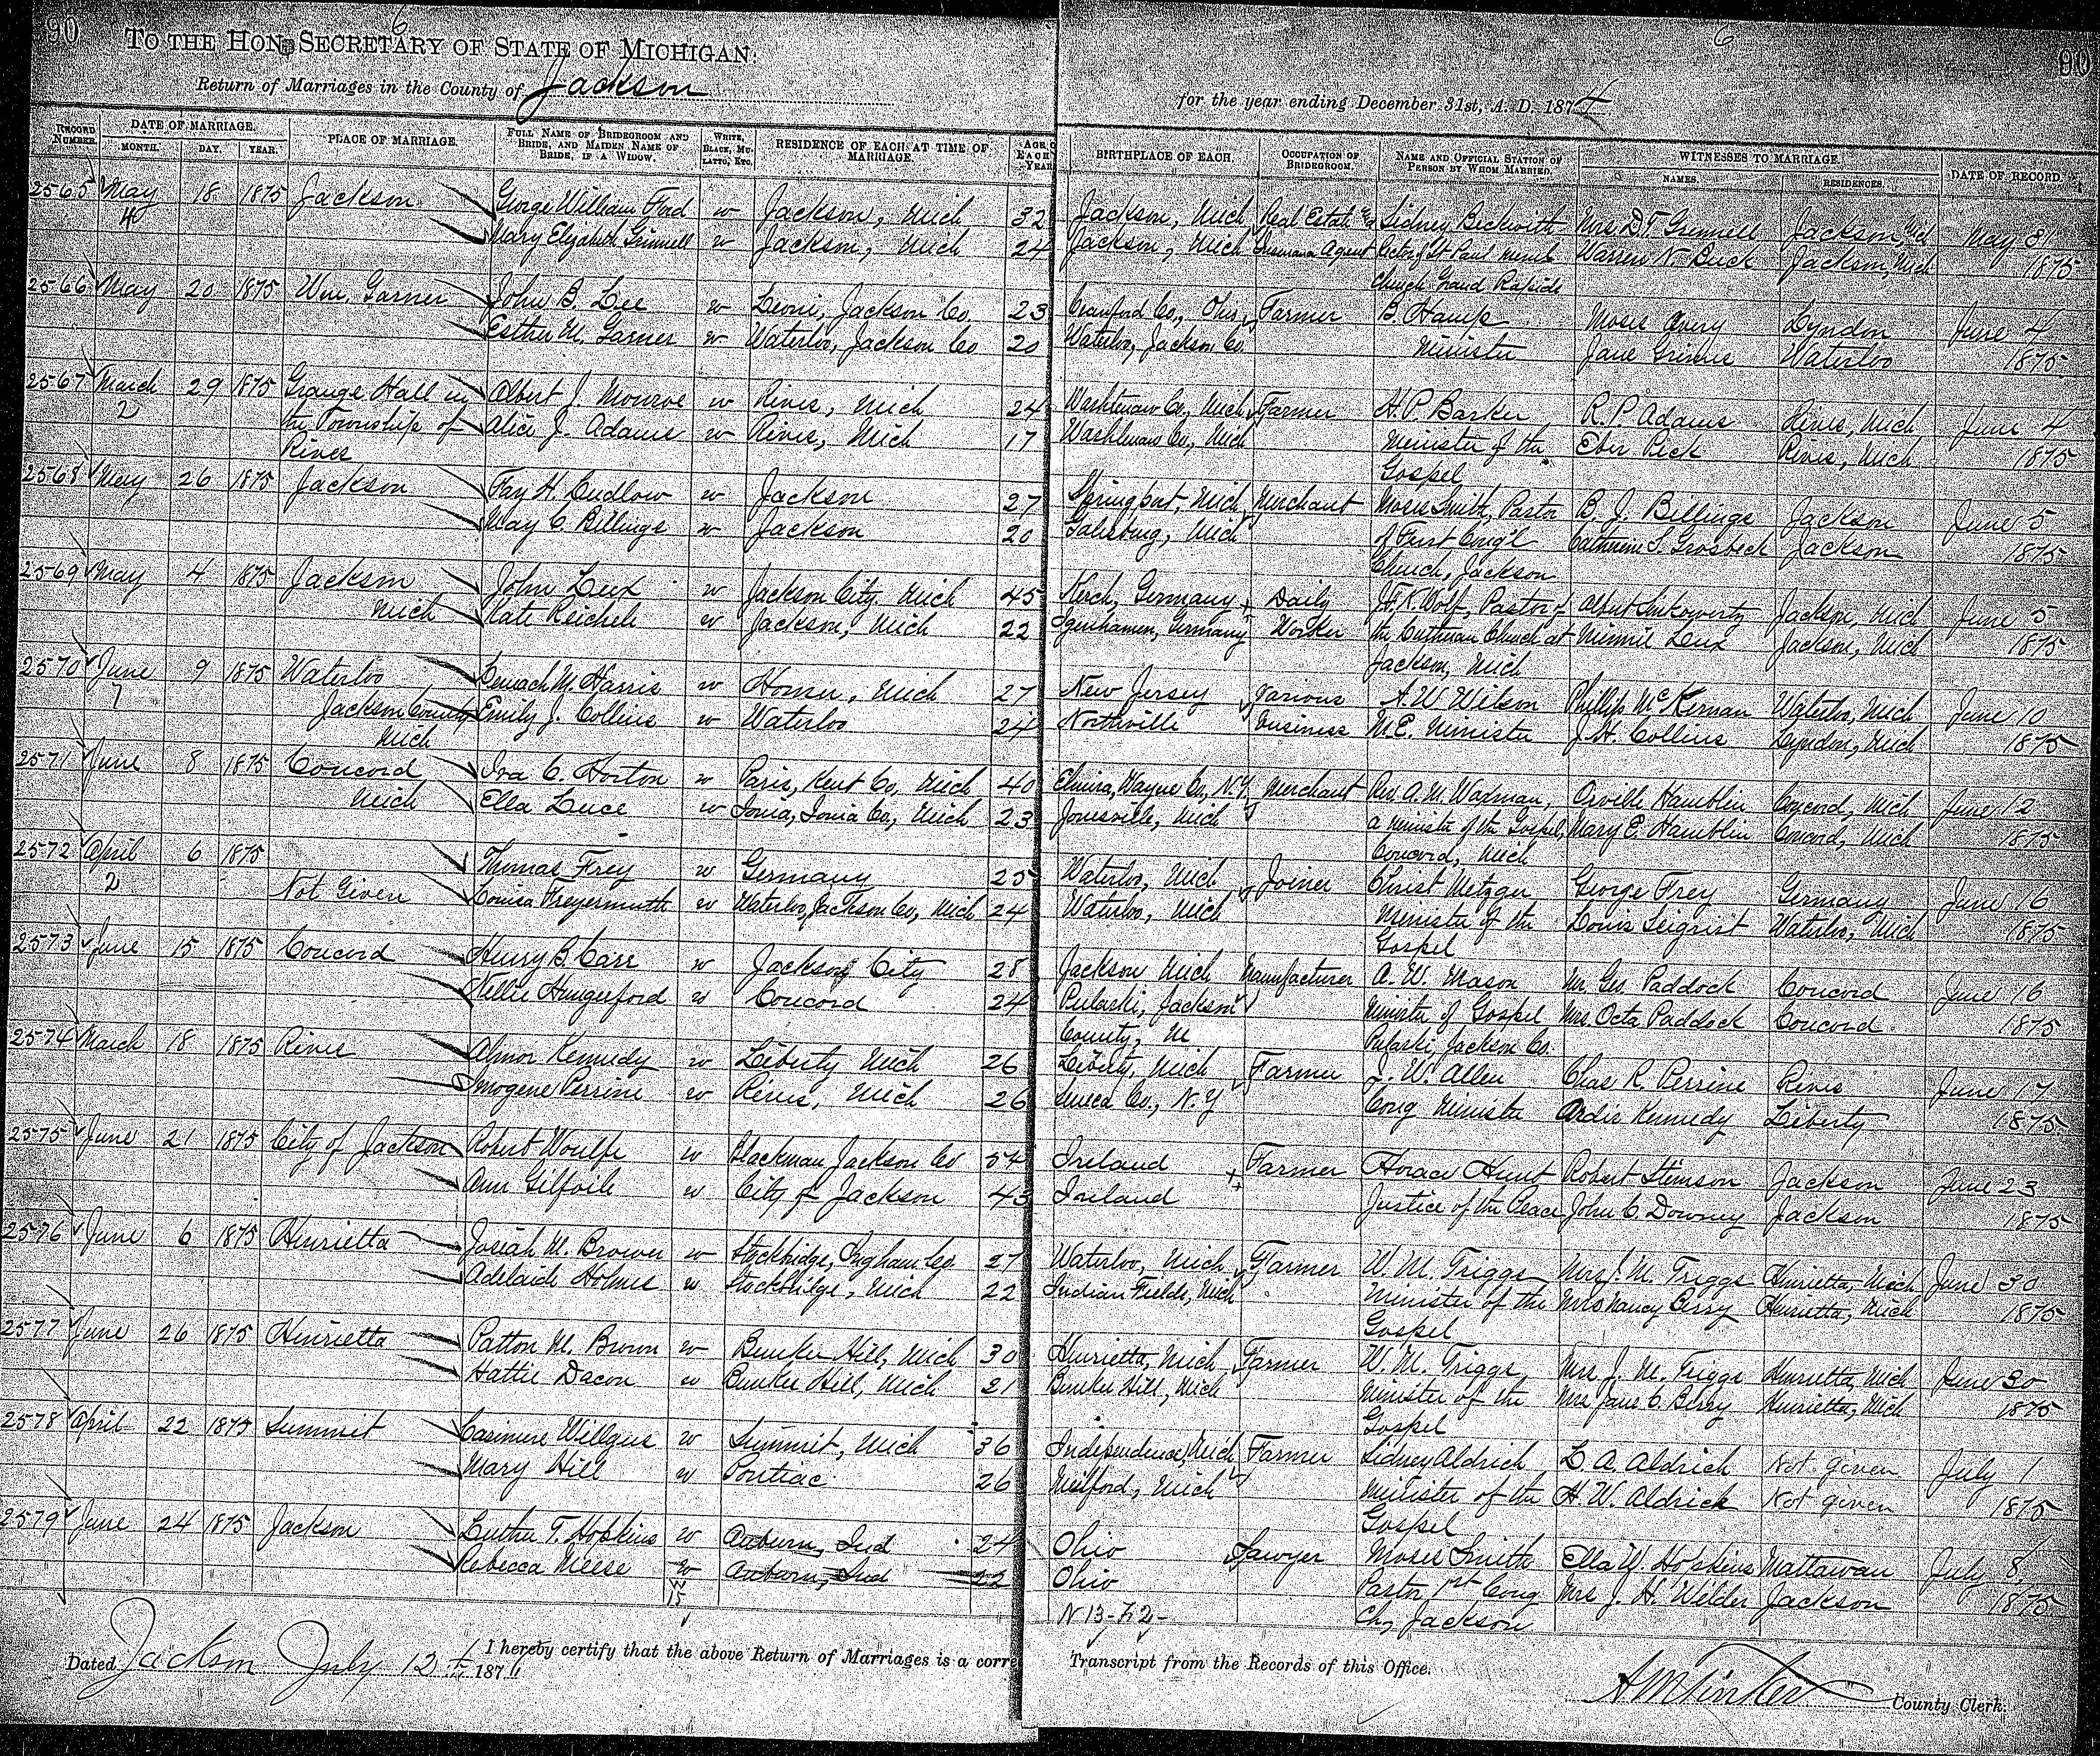 90
6
TO THE HON. SECRETARY OF STATE OF MICHIGAN:
Return of Marriages in the County of Jackson
6
90
for the year ending December 31st, A. D. 1874
RECORD NUMBER. DATE OF MARRIAGE. MONTH. DAY. YEAR. PLACE OF MARRIAGE. FULL NAME OF BRIDEGROOM AND BRIDE, AND MAIDEN NAME OF BRIDE, IF A WIDOW. WHITE, BLACK, MULATTO, ETC. RESIDENCE OF EACH AT TIME OF MARRIAGE. AGE EACH YEAR
BIRTHPLACE OF EACH. OCCUPATION OF BRIDEGROOM. NAME AND OFFICIAL STATION OF PERSON BY WHOM MARRIED. WITNESSES TO MARRIAGE. NAMES. RESIDENCES. DATE OF RECORD.
2565 May 18 1875 Jackson George William Ford w Jackson, Mich 32 Jackson, Mich Real Estate & Sidney Beckwith Mrs D. T. Grinnell Jackson, Mich May 31
4 Mary Elizabeth Grinnell w Jackson, Mich 24 Jackson, Mich Insurance Agent Rector of St Paul Meml Warren N. Buck Jackson, Mich 1875
Church Grand Rapids
2566 May 20 1875 Wm. Garner John B. Lee w Leoni, Jackson Co. 23 Crawford Co., Ohio Farmer B. Hamp Moses Avery Lyndon June 4
Esther M. Garner w Waterloo, Jackson Co 20 Waterloo, Jackson Co. Minister Jane Grimes Waterloo 1875
2567 March 29 1875 Grange Hall in Albert J. Monroe w Rives, Mich 24 Washtenaw Co., Mich Farmer H. P. Barker R. P. Adams Rives, Mich June 4
2 the Township of Alice J. Adams w Rives, Mich 17 Washtenaw Co., Mich Minister of the Eber Peck Rives, Mich 1875
Rives Gospel
2568 May 26 1875 Jackson Fay H. Ludlow w Jackson 27 Springport, Mich Merchant Moses Smith, Pastor B. J. Billings Jackson June 5
May C. Billings w Jackson 20 Galesburg, Mich of First Cong'l Catherine S. Grosbeck Jackson 1875
Church, Jackson
2569 May 4 1875 Jackson John Lux w Jackson City. Mich 45 Kerch, Germany Daily J. F. K. Wolf, Pastor of Albert Jackson, Mich June 5
Mich Kate Reichele w Jackson, Mich 22 Germany Worker the Lutheran Church at Minnie Lux Jackson, Mich 1875
Jackson, Mich
2570 June 9 1875 Waterloo M. Harris w Homer, Mich 27 New Jersey Various A. W. Wilson Phillip McKernan Waterloo, Mich June 10
7 Jackson County Emily J. Collins w Waterloo 24 Northville business M. E. Minister J. H. Collins Lyndon, Mich 1875
Mich
2571 June 8 1875 Concord Ira C. Horton w Paris, Kent Co, Mich 40 Elmira, Wayne Co, N.Y. Merchant Rev. A. M. Wadman, Orville Hamblin Concord, Mich June 12
Mich Ella Luce w Ionia, Ionia Co, Mich 23 Jonesville, Mich a minister of the Gospel, Mary E. Hamblin Concord, Mich 1875
Concord, Mich
2572 April 6 1875 Thomas Frey w Germany 25 Waterloo, Mich Joiner Christ Metzger George Frey Germany June 16
2 Not Given Louisa Freyermuth w Waterloo, Jackson Co, Mich 24 Waterloo, Mich Minister of the Louis Seigrist Waterloo, Mich 1875
Gospel
2573 June 15 1875 Concord Henry B. Carr w Jackson City 28 Jackson Mich Manufacturer A. W. Mason Mr. Geo Paddock Concord June 16
Nellie Hungerford w Concord 24 Pulaski, Jackson Minister of Gospel Mrs. Octa Paddock Concord 1875
County, M Pulaski, Jackson Co.
2574 March 18 1875 Rives Almor Kennedy w Liberty Mich 26 Liberty, Mich Farmer J. W. Allen Chas R. Perrine Rives June 17
Imogene Perrine w Rives, Mich 26 Seneca Co., N. Y Cong Minister Ardie Kennedy Liberty 1875
2575 June 21 1875 City of Jackson Robert Woulfe w Blackman Jackson Co 54 Ireland Farmer Horace Hunt Robert Stimson Jackson June 23
Ann Gilfoile w City of Jackson 43 Ireland Justice of the Peace John C. Downey Jackson 1875
2576 June 6 1875 Henrietta Josiah M. Brower w Stockbridge, Ingham Co. 27 Waterloo, Mich Farmer W. M. Triggs Mrs J. M. Triggs Henrietta, Mich June 30
Adelaide Holmes w Stockbridge, Mich 22 Indian Fields, Mich Minister of the Mrs Nancy Berry Henrietta, Mich 1875
Gospel
2577 June 26 1875 Henrietta Patton M. Brown w Bunker Hill, Mich 30 Henrietta, Mich Farmer W. M. Triggs Mrs. J. M. Triggs Henrietta, Mich June 30
Hattie Dacon w Bunker Hill, Mich 21 Bunker Hill, Mich Minister of the Mrs Jane C. Berry Henrietta, Mich 1875
Gospel
2578 April 22 1875 Summit Casimere Willgus w Summit, Mich 36 Independence, Mich Farmer Sidney Aldrich L. A. Aldrich Not given July 1
Mary Hill w Pontiac 26 Milford, Mich Minister of the H. W. Aldrich Not given 1875
Gospel
2579 June 24 1875 Jackson Luther T. Hopkins w Auburn, Ind 24 Ohio Sawyer Moses Smith Ella W. Hopkins Mattawan July 8
Rebecca Neese w Auburn, Ind 22 Ohio Pastor 1st Cong Mrs. J. H. Welder Jackson 1875
W 15 N 13-F2- Ch, Jackson
Dated Jackson July 12th 1874 I hereby certify that the above Return of Marriages is a corre Transcript from the Records of this Office.
A M Tinker County Clerk.